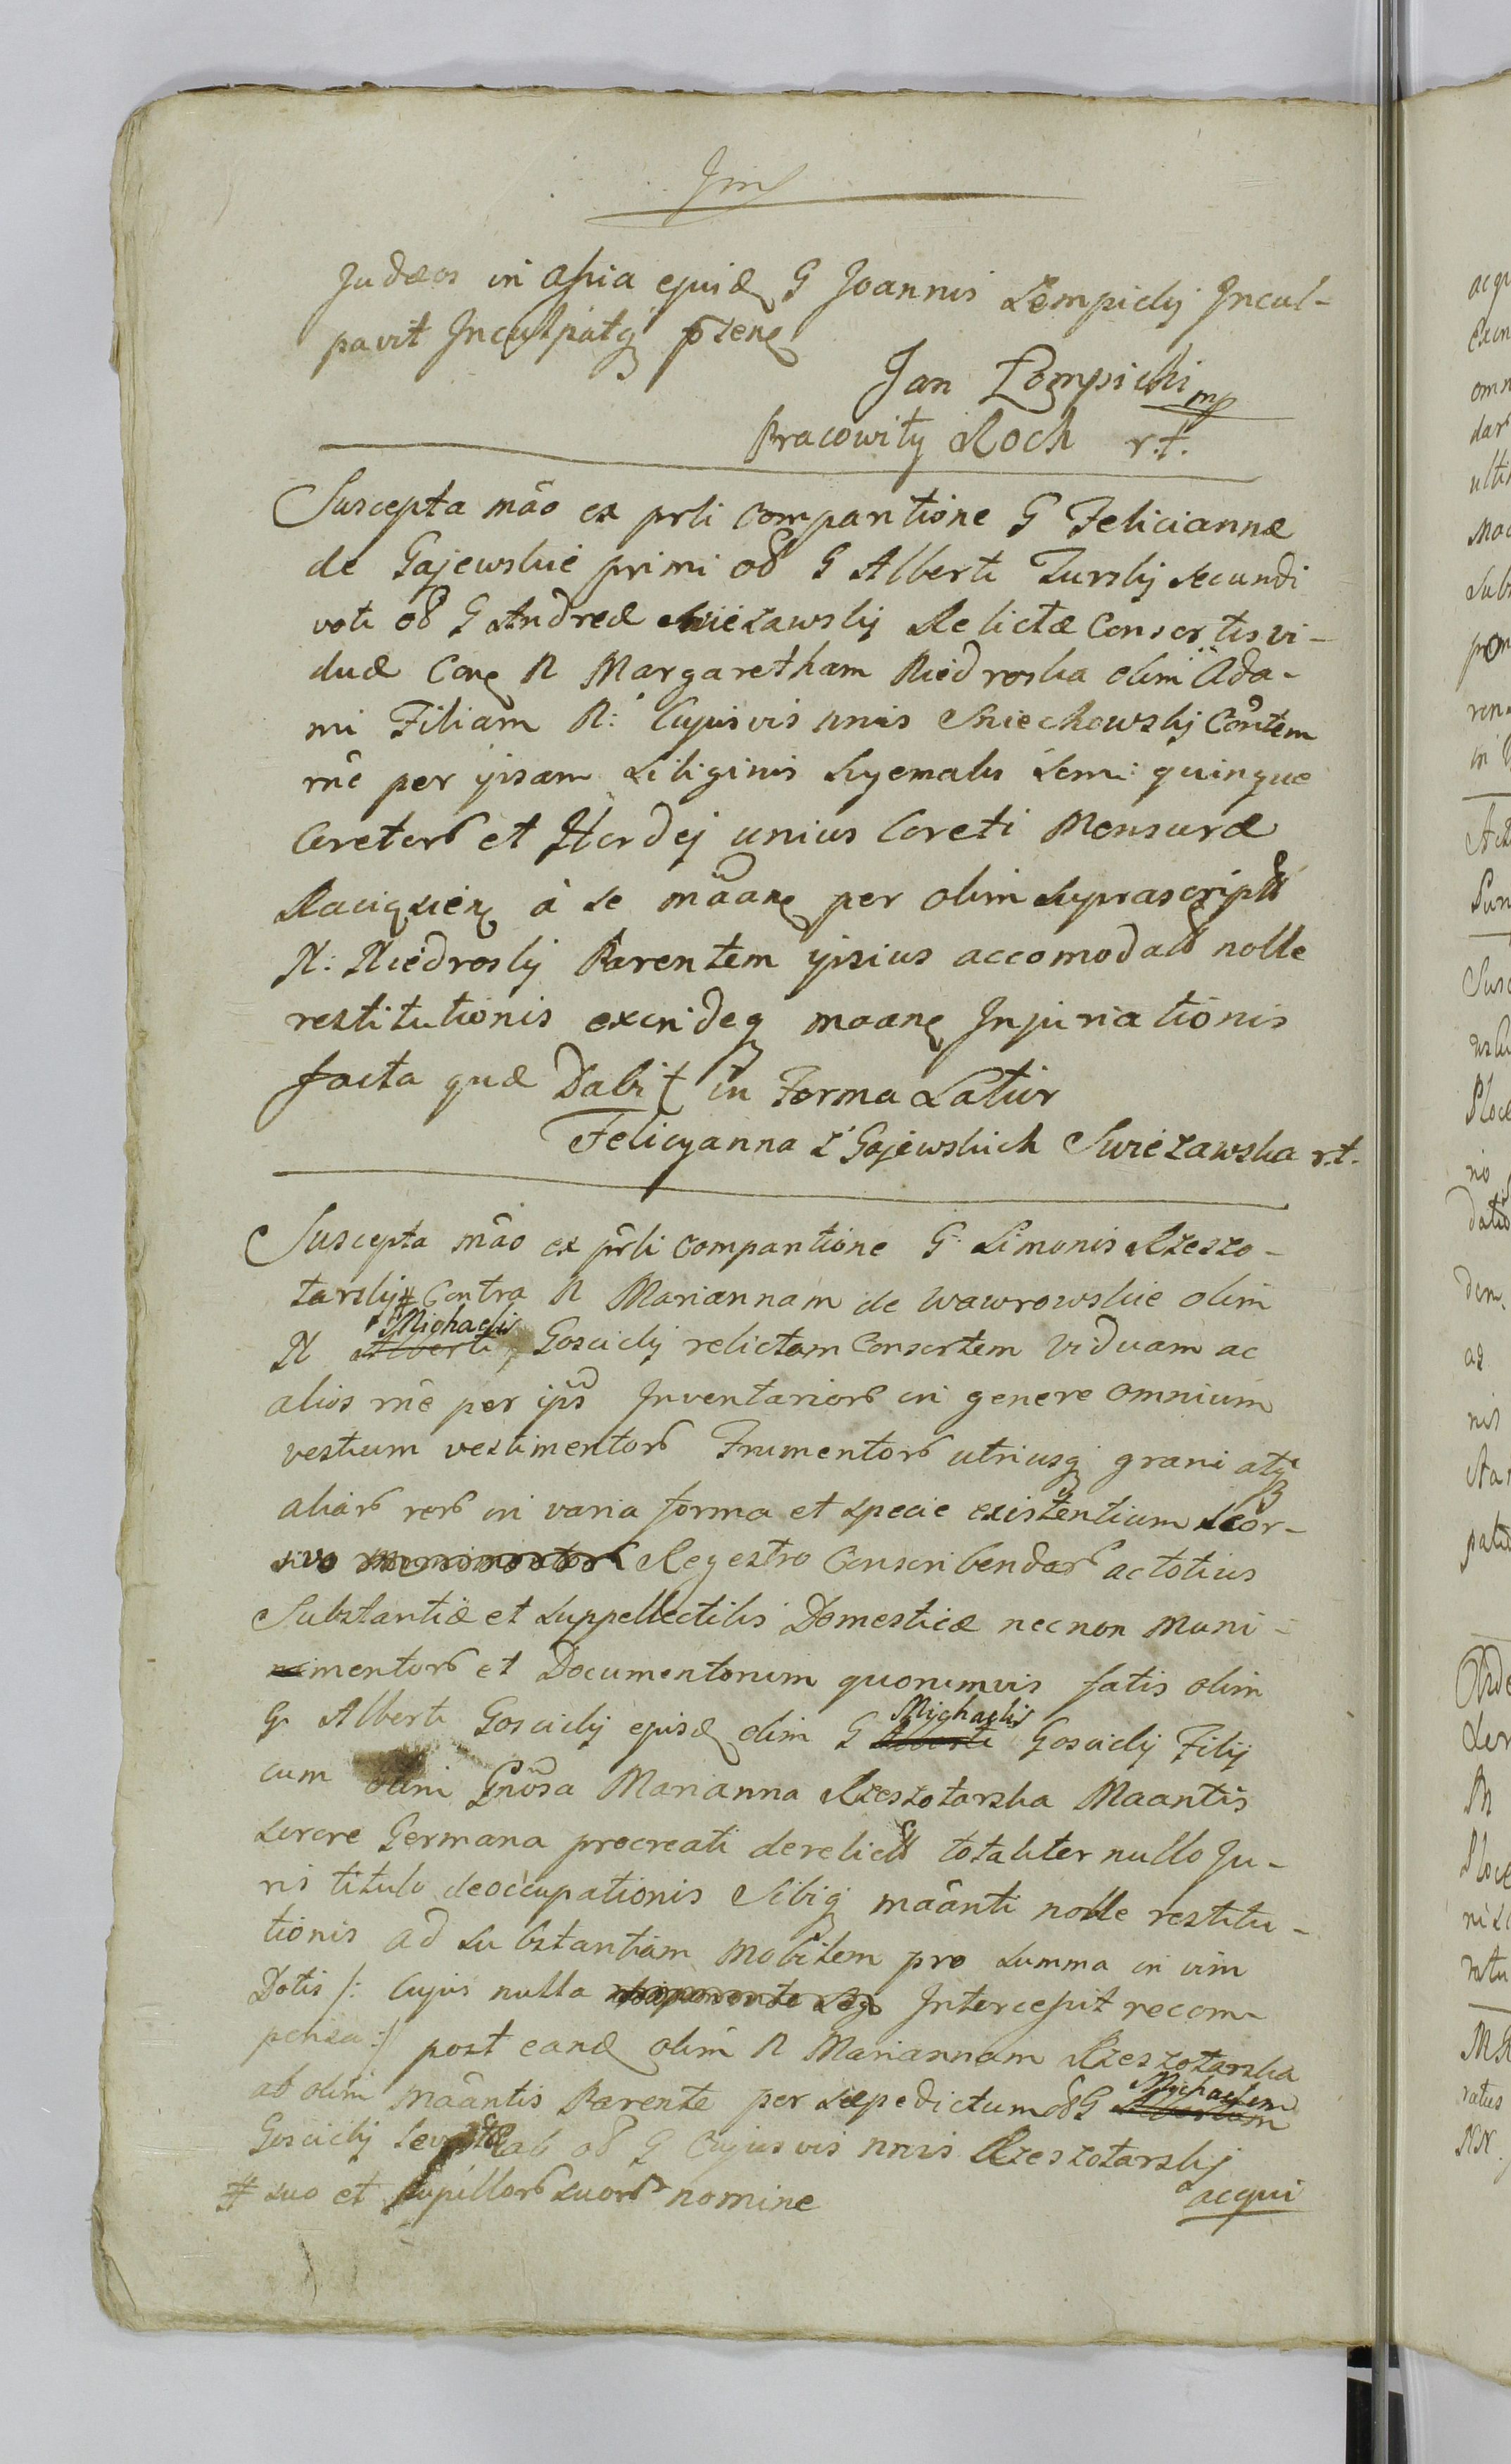 Judæos in assia ejusd G Joannis Lempicky Incul-
pavit Inculpatq præsens
Jan Lempicki mp
Pracowity Roch r.t.
Suscepta mão ex prli comparitione G Feliciannæ
de Gajewskie primi ol G Alberti Turskij secundi
voti ol G Andreæ Swiezawskij Relictæ Consortis vi-
duæ Con N Margaretham Niedroska olim Ada-
mi Filiam N: Cujusvis nnis Sniechowskij Cõrtem
rnê per ipsam Siliginis Hyemalis Sem: quinque
Coretorb et Hordej unius Coreti Mensuræ
Raciązien à se mãan per olim suprascript
N: Niedroskij Parentem ipsius accomodatb nolle
restitutionis exindeq maan Injuriationis
facta quæ Dabit in Forma Latior
Felicyanna z Gajewskich Swiezawska r.t.
Suscepta mão ex prli comparitione G. Simonis Rzeszo-
tarskij # Contra N Mariannam de Wawrowskie olim
N Alberti Michaelis Goscickij relictam Consortem Viduam ac
alios rnê per ipš Inventariorb in genere omnium
vestium vestimentorb Frumentorb utriusq grani atq
aliarb rerb in varia forma et specie existentium seor-
sivo Regestro Conscribendarb ac totius
Substantiæ et Suppellectilis Domesticæ nec non Muni-
mentorb et Documentorum quorumvis fatis olim
G Alberti Goscickij ejusd olim G Alberti Michaelis Goscickij Filij
cum olim Gnosa Marianna Rzeszotarska Maantis
sorore Germana procreati derelict totaliter nullo Ju-
ris titulo deoccupationis Sibiq mãanti nolle restitu-
tionis ad substantiam Mobilem pro summa in vim
Dotis /: Cujus nulla Intercessit recom-
pensa :/ post eand olim N Mariannam Rzeszotarska
ab olim mãantis Parente per sæpedictum ol G Albertum Michaelem
Goscickij ab ol G Cujusvis nnis Rzeszotarskij
# suo et pupillorb suorb nomine
acqui